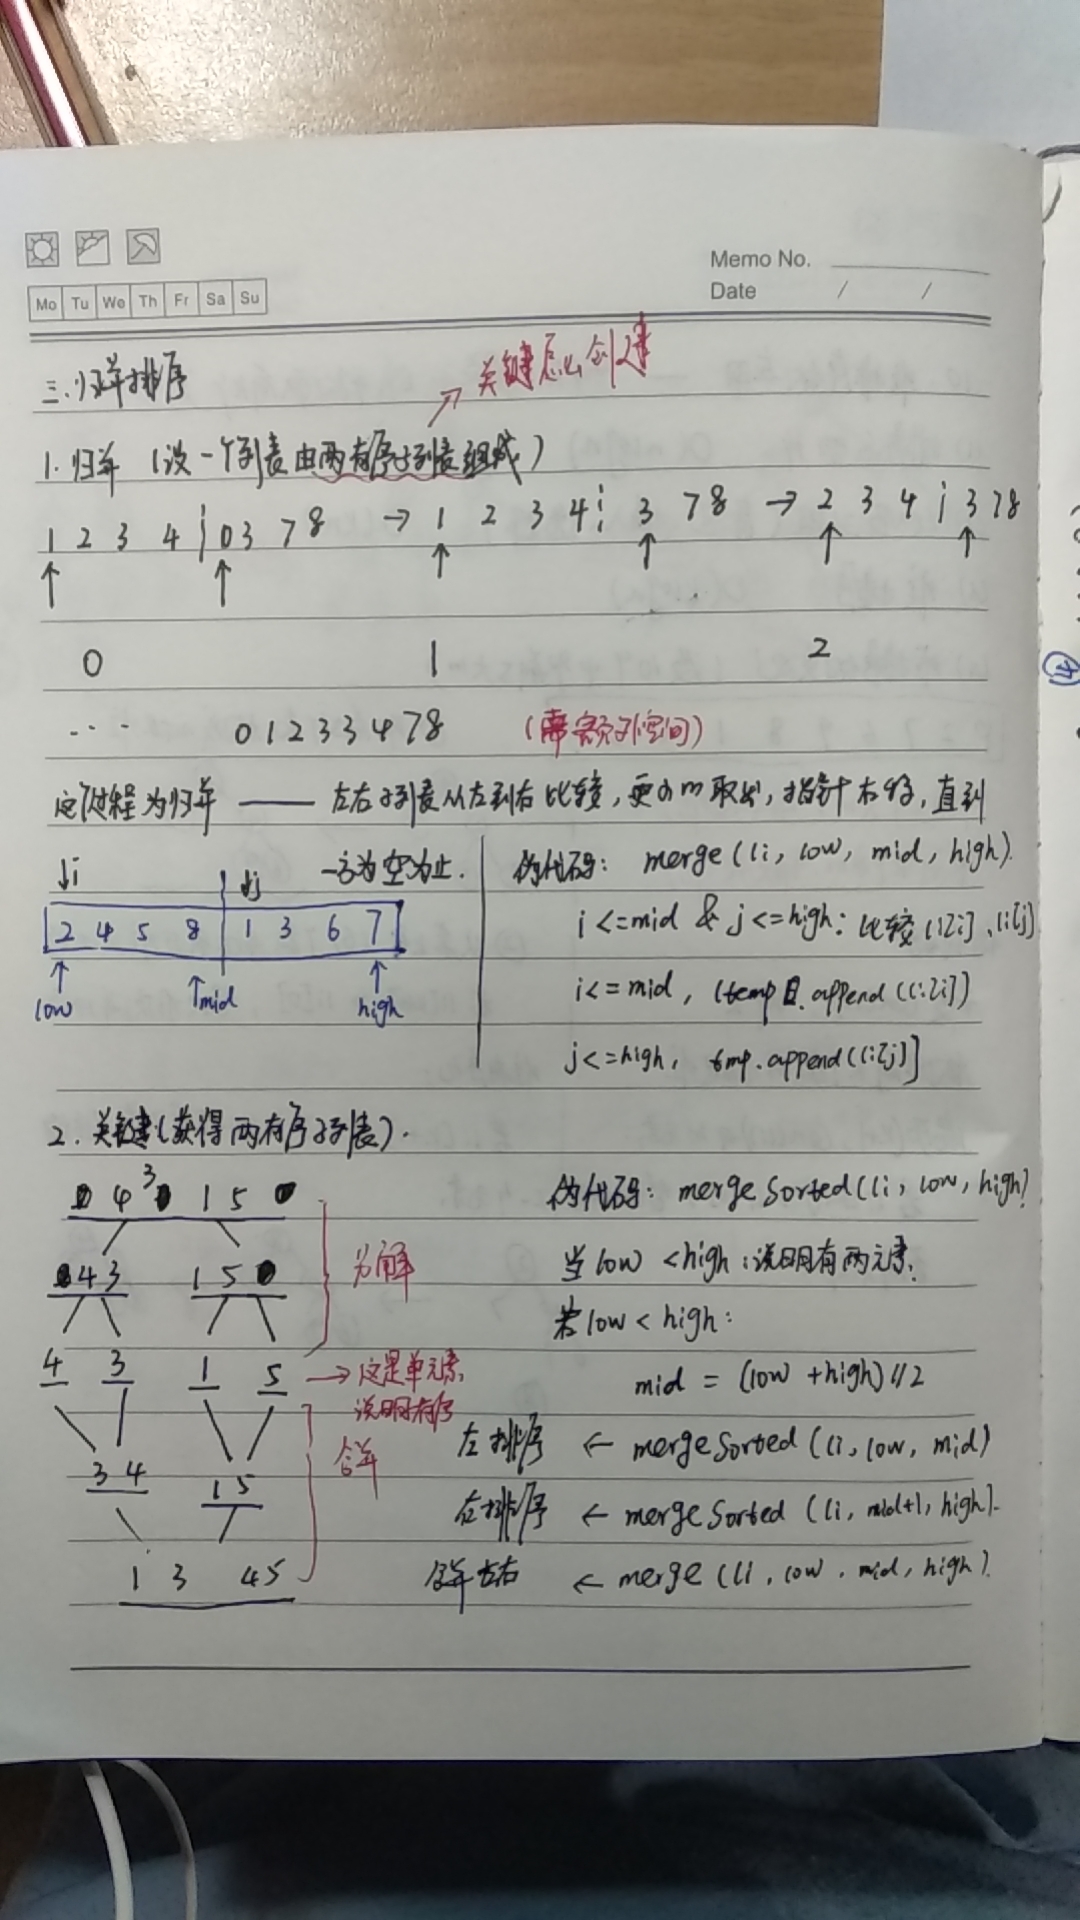 Memo No.
Date / /
Mo Tu We Th Fr Sa Su
三.归并排序
→ 关键怎么创建
1. 归并 (设一个列表由两有序子列表组成)
1 2 3 4 ¦ 0 3 7 8 → 1 2 3 4 ¦ 3 7 8 → 2 3 4 ¦ 3 7 8
↑ ↑ ↑ ↑ ↑ ↑
0 1 2
... 0 1 2 3 3 4 7 8 (需额外空间)
这个过程为归并 —— 左右子列表从左到右比较, 更小的取出, 指针右移, 直到
一方为空为止.
↓i ↓j
2 4 5 8 1 3 6 7
↑ ↑mid ↑
low high
伪代码: merge(li, low, mid, high).
i <=mid & j <=high: 比较 li[i]、li[j]
i<= mid, (temp .append(li[i])
j<=high, tmp.append(li[j)]
2. 关键(获得两有序子列表).
4 3 1 5
4 3 1 5
4 3 1 5
3 4 1 5
1 3 4 5
分解
→ 这是单元素,
说明有序
合并
伪代码: mergeSorted(li, low, high)
当 low < high: 说明有两元素.
若 low < high:
mid = (low +high)//2
左排序 ← mergeSorted (li, low, mid)
右排序 ← mergeSorted (li, mid+1, high).
合并左右 ← merge (li, low, mid, high).